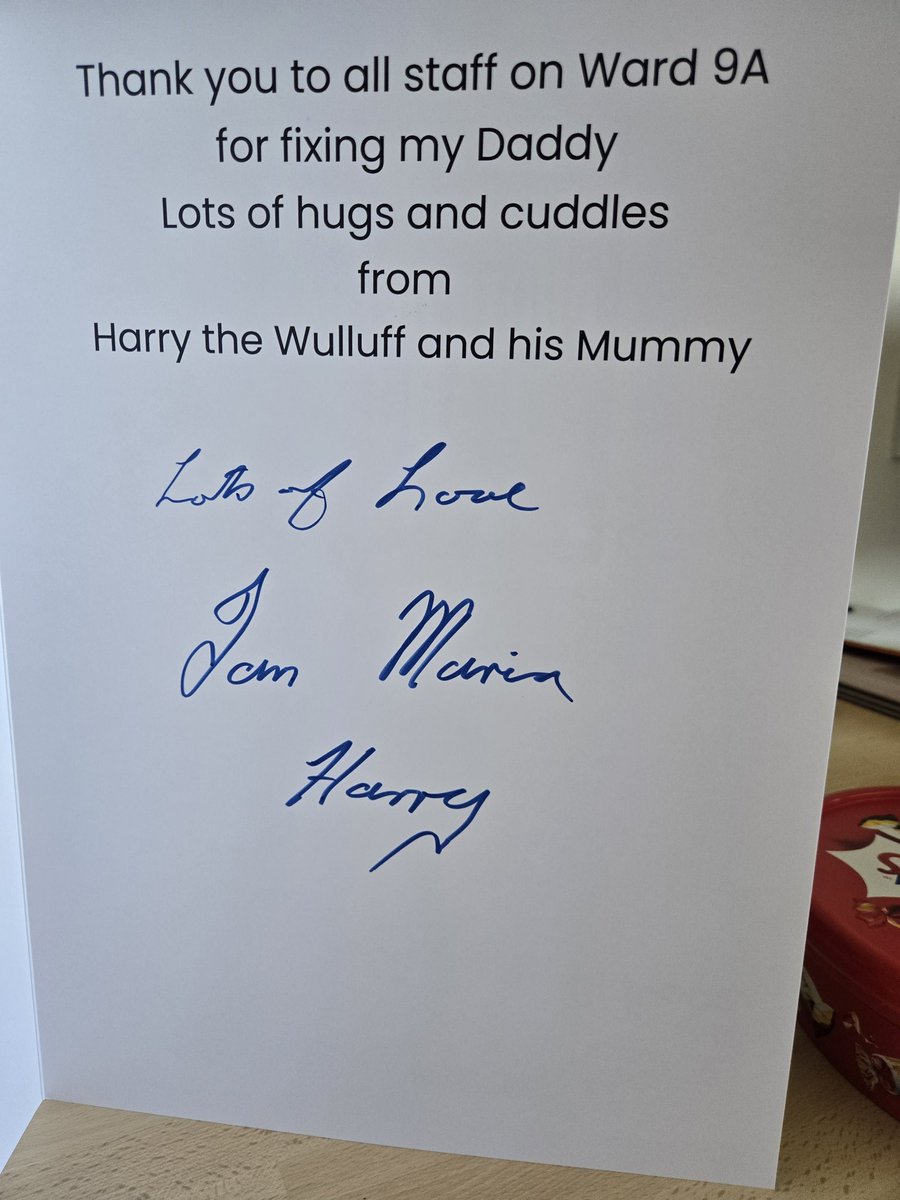 Thank you to all staff on Ward 9A
for fixing my Daddy
Lots of hugs and cuddles
from
Harry the Wulluff and his Mummy
Lots of Love
Iam Maria
Harry